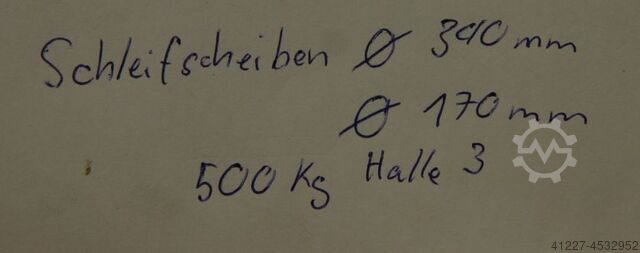 Schleifscheiben Ø 390 mm
Ø 170 mm
500 Kg Halle 3
41227-4532952